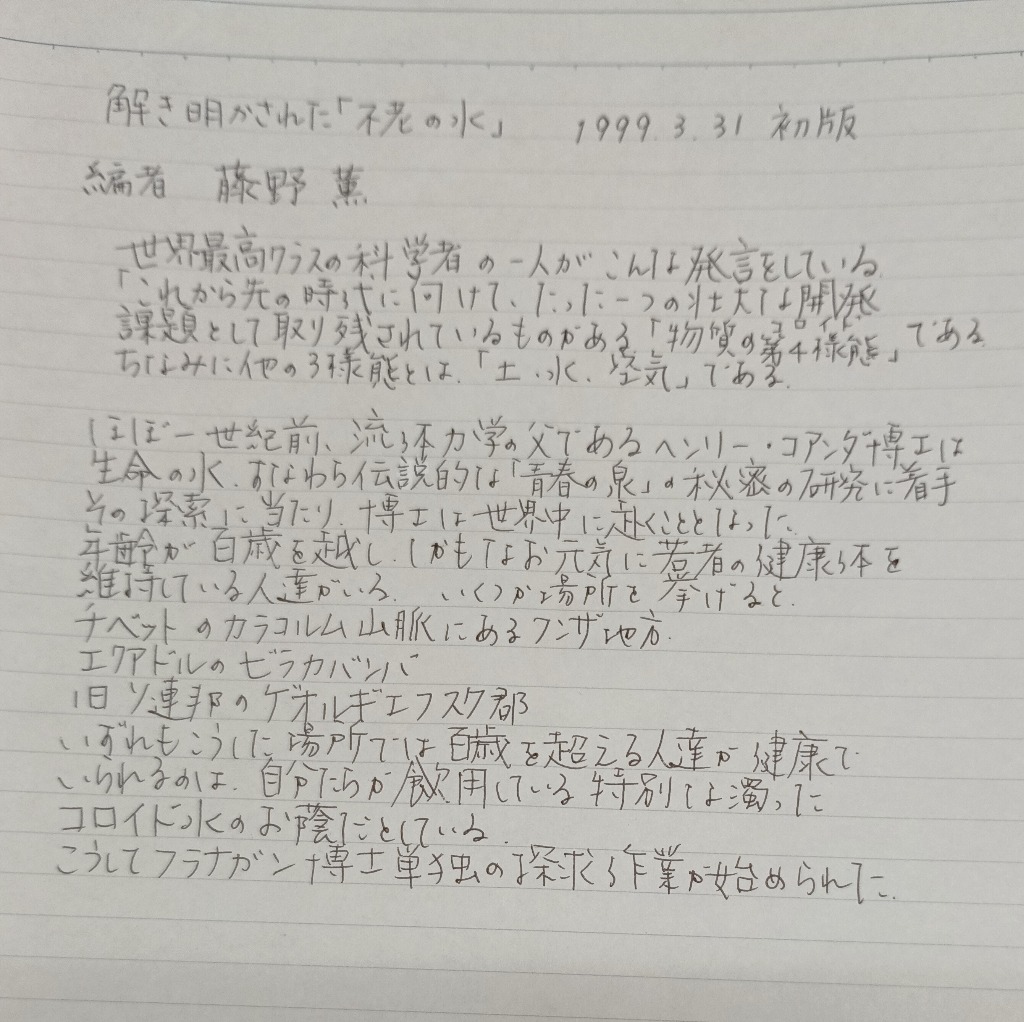 解き明かされた「不老の水」 1999.3.31 初版
編者 藤野 薫
世界最高クラスの科学者の一人がこんな発言をしている。
「これから先の時代に向けて、たった一つの壮大な開発
課題として取り残されているものがある「物質の第4様態」である。
コロイド
ちなみに他の3様態とは、「土、水、空気」である。
ほぼ一世紀前、流体力学の父であるヘンリー・コアンダ博士は
生命の水、すなわち伝説的な「青春の泉」の秘密の研究に着手
その探索に当たり、博士は世界中に赴くこととなった。
年齢が百歳を越し、しかもなお元気に若者の健康体を
維持している人達がいる。 いくつか場所を挙げると、
チベットのカラコルム山脈にあるフンザ地方、
エクアドルのビラカバンバ
旧ソ連邦のゲオルギエフスク郡
いずれもこうした場所では百歳を超える人達が健康で
いられるのは、自分たちが飲用している特別な濁った
コロイド水のお陰だとしている。
こうしてフラナガン博士単独の探求作業が始められた。